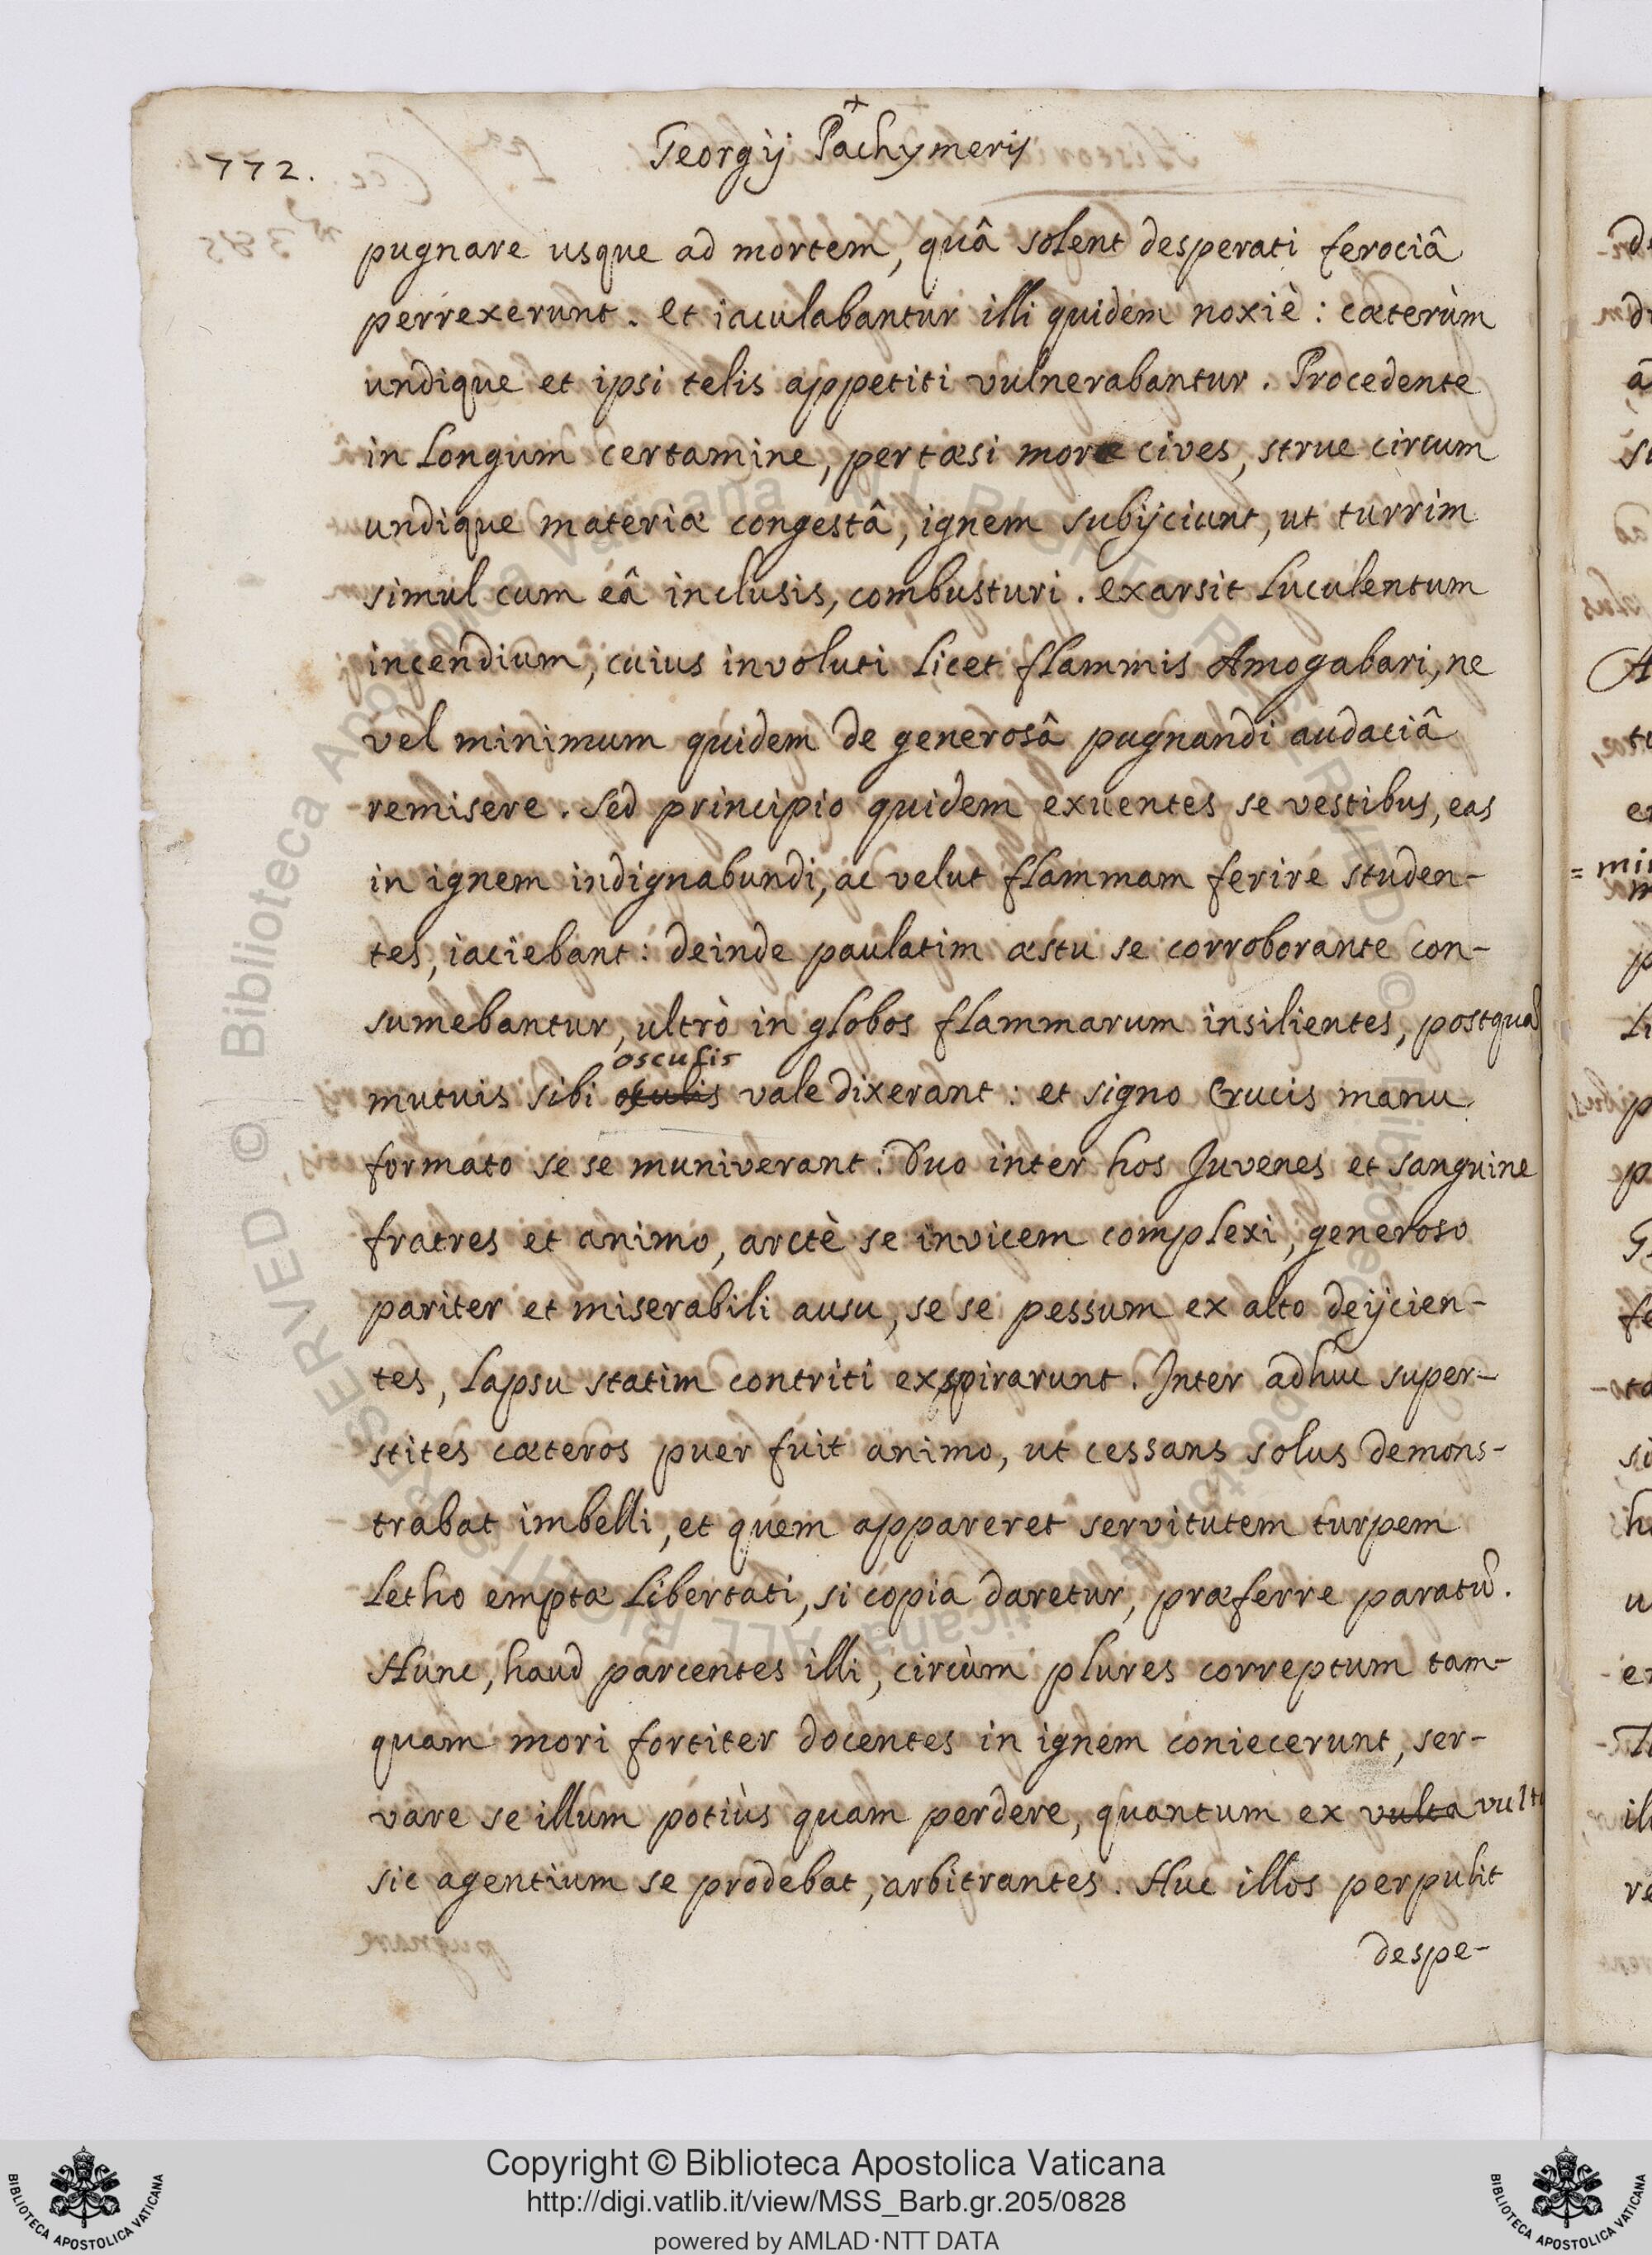 772.
Georgij Pachymeris
pugnare usque ad mortem, quâ solent desperati ferociâ
perrexerunt. et iaculabantur illi quidem noxiè: cæterùm
undique et ipsi telis appetiti vulnerabantur. Procedente
in longum certamine, pertæsi moræ cives, strue circum
undique materiæ congestâ, ignem subijciunt, ut turrim
simul cum eâ inclusis, combusturi. exarsit luculentum
incendium, cuius involuti licet flammis Amogabari, ne
vel minimum quidem de generosâ pugnandi audaciâ
remisere. Sed principio quidem exuentes se vestibus, eas
in ignem indignabundi, ac velut flammam ferire studen-
tes, iaciebant: deinde paulatim æstu se corroborante con-
sumebantur, ultrò in globos flammarum insilientes, postquã
osculis
mutuis sibi oculis vale dixerant: et signo Crucis manu
formato se se muniverant. Duo inter hos Juvenes et sanguine
fratres et animo, arctè se invicem complexi, generoso
pariter et miserabili ausu, se se pessum ex alto deijcien-
tes, lapsu statim contriti exspirarunt. Inter adhuc super-
stites cæteros puer fuit animo, ut cessans solus demons-
trabat imbelli, et quem appareret servitutem turpem
letho emptæ libertati, si copia daretur, præferre paratũ.
Hunc, haud parcentes illi, circùm plures correptum tam-
quam mori fortiter docentes in ignem coniecerunt, ser-
vare se illum potiùs quam perdere, quantum ex vulta vultu
sic agentium se prodebat, arbitrantes. Huc illos perpulit
despe-
Copyright © Biblioteca Apostolica Vaticana
http://digi.vatlib.it/view/MSS_Barb.gr.205/0828
powered by AMLAD·NTT DATA
BIBLIOTECA APOSTOLICA VATICANA
BIBLIOTECA APOSTOLICA VATICANA